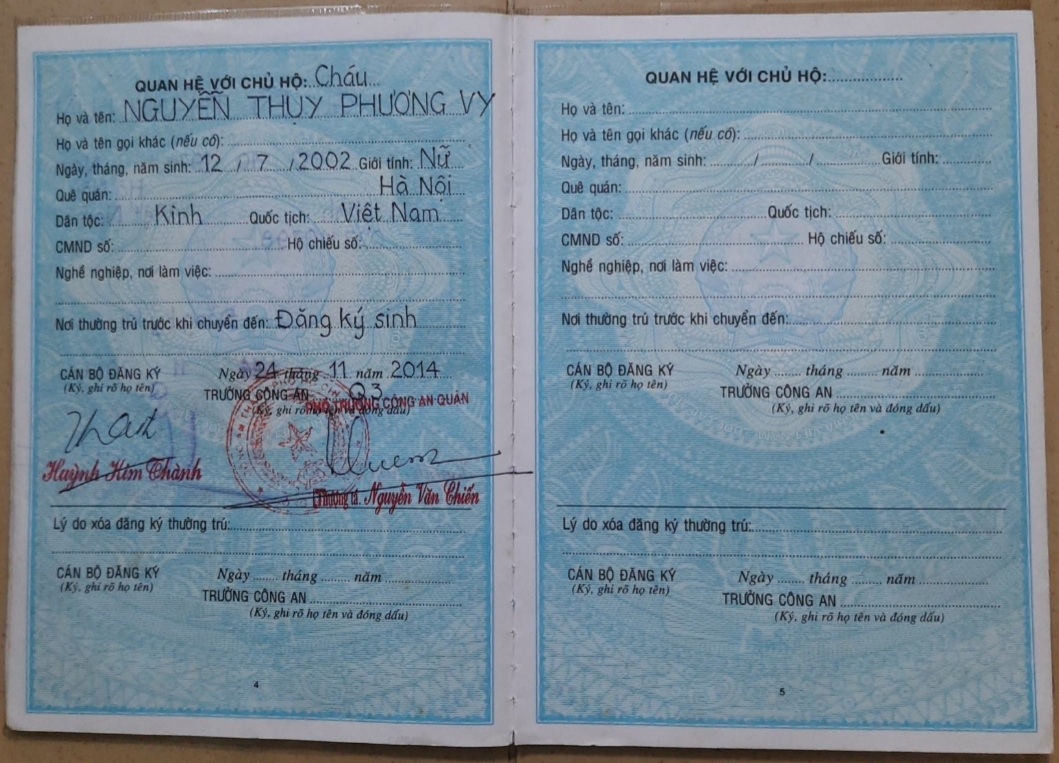 QUAN HỆ VỚI CHỦ HỘ: Cháu
Họ và tên: NGUYỄN THỤY PHƯƠNG VY
Họ và tên gọi khác (nếu có):
Ngày, tháng, năm sinh: 12 / 7 / 2002 Giới tính: Nữ
Quê quán: Hà Nội
Dân tộc: Kinh Quốc tịch: Việt Nam
CMND số: Hộ chiếu số:
Nghề nghiệp, nơi làm việc:
Nơi thường trú trước khi chuyển đến: Đăng ký sinh
CÁN BỘ ĐĂNG KÝ
(Ký, ghi rõ họ tên)
Ngày 24 tháng 11 năm 2014
TRƯỞNG CÔNG AN Q3
(Ký, ghi rõ họ tên và đóng dấu)
PHÓ TRƯỞNG CÔNG AN QUẬN
Huỳnh Kim Thành
Thượng tá. Nguyễn Văn Chiến
Lý do xóa đăng ký thường trú:
CÁN BỘ ĐĂNG KÝ
(Ký, ghi rõ họ tên)
Ngày tháng năm
TRƯỞNG CÔNG AN
(Ký, ghi rõ họ tên và đóng dấu)
4
QUAN HỆ VỚI CHỦ HỘ:
Họ và tên:
Họ và tên gọi khác (nếu có):
Ngày, tháng, năm sinh: / / Giới tính:
Quê quán:
Dân tộc: Quốc tịch:
CMND số: Hộ chiếu số:
Nghề nghiệp, nơi làm việc:
Nơi thường trú trước khi chuyển đến:
CÁN BỘ ĐĂNG KÝ
(Ký, ghi rõ họ tên)
Ngày tháng năm
TRƯỞNG CÔNG AN
(Ký, ghi rõ họ tên và đóng dấu)
Lý do xóa đăng ký thường trú:
CÁN BỘ ĐĂNG KÝ
(Ký, ghi rõ họ tên)
Ngày tháng năm
TRƯỞNG CÔNG AN
(Ký, ghi rõ họ tên và đóng dấu)
5